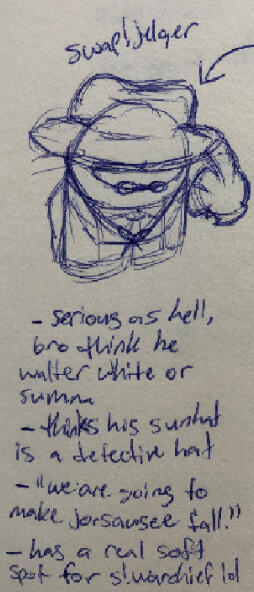 swap!jelqer
- serious as hell,
bro think he
walter white or
summn
- thinks his sunhat
is a defective hat
- "we are going to
make jorsawsee fall."
- has a real soft
spot for s!wardhief lol